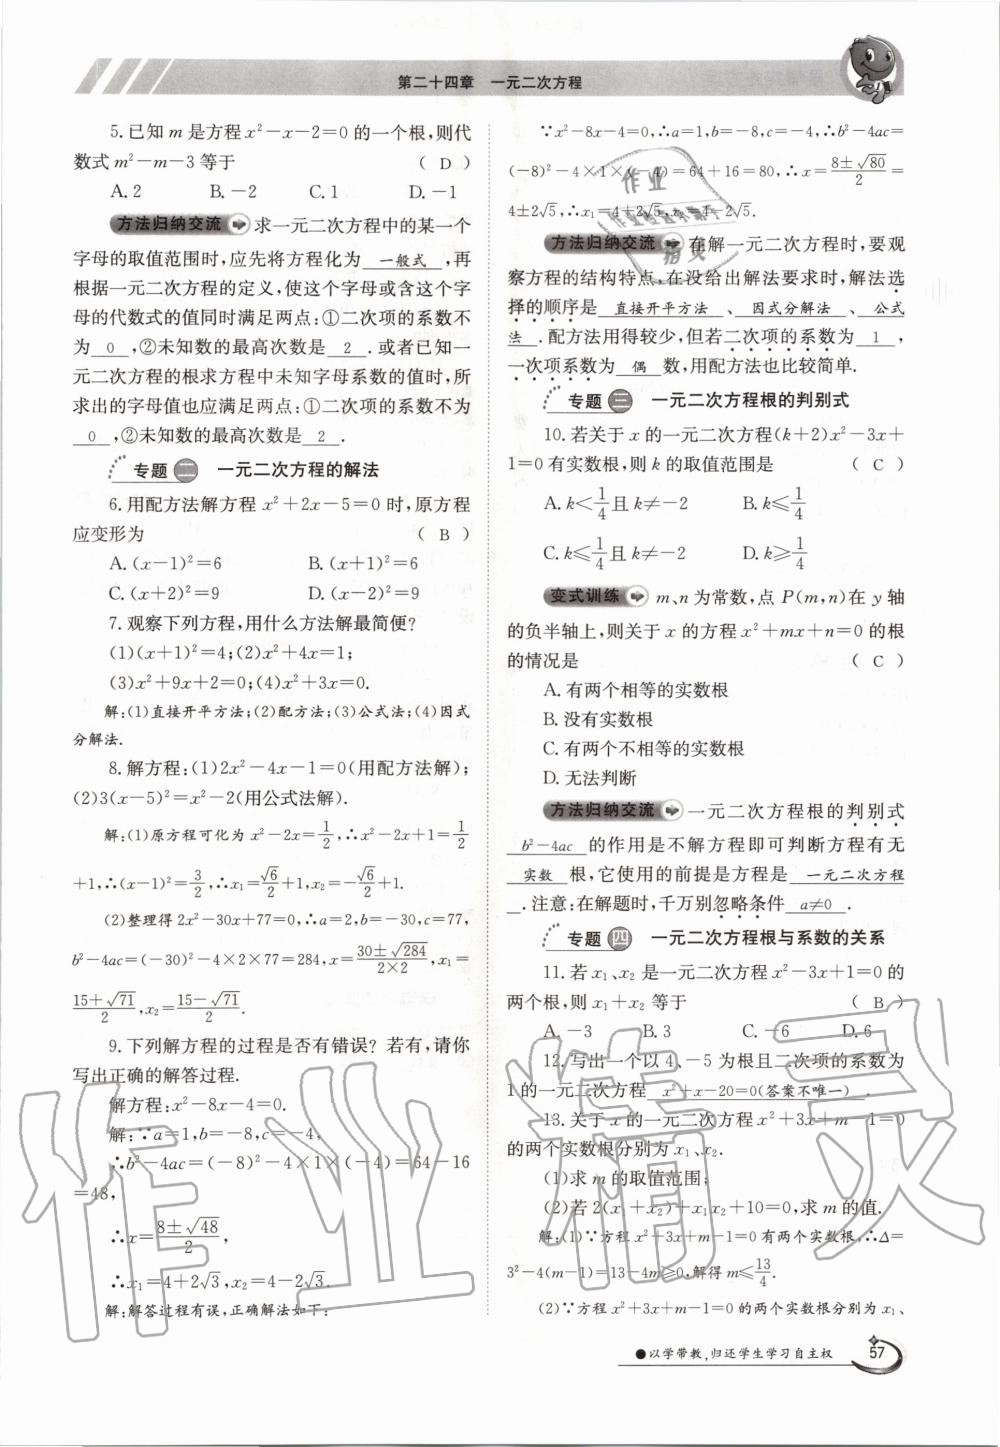 第二十四章　一元二次方程
5.已知 m 是方程 x²－x－2＝0 的一个根,则代
数式 m²－m－3 等于 （ D ）
A. 2　B. －2　C. 1　D. －1
方法归纳交流 求一元二次方程中的某一个
字母的取值范围时,应先将方程化为 一般式 ,再
根据一元二次方程的定义,使这个字母或含这个字
母的代数式的值同时满足两点:①二次项的系数不
为 0 ,②未知数的最高次数是 2 .或者已知一
元二次方程的根求方程中未知字母系数的值时,所
求出的字母值也应满足两点:①二次项的系数不为
0 ,②未知数的最高次数是 2 .
专题二　一元二次方程的解法
6.用配方法解方程 x²＋2x－5＝0 时,原方程
应变形为 （ B ）
A. (x－1)²＝6　B. (x＋1)²＝6
C. (x＋2)²＝9　D. (x－2)²＝9
7.观察下列方程,用什么方法解最简便?
(1)(x＋1)²＝4;(2)x²＋4x＝1;
(3)x²＋9x＋2＝0;(4)x²＋3x＝0.
解:(1)直接开平方法;(2)配方法;(3)公式法;(4)因式
分解法.
8.解方程:(1)2x²－4x－1＝0(用配方法解);
(2)3(x－5)²＝x²－2(用公式法解).
解:(1)原方程可化为 x²－2x＝1/2,∴x²－2x＋1＝1/2
＋1,∴(x－1)²＝3/2,∴x₁＝√6/2＋1,x₂＝－√6/2＋1.
(2)整理得 2x²－30x＋77＝0,∴a＝2,b＝－30,c＝77,
b²－4ac＝(－30)²－4×2×77＝284,x＝(30±√284)/(2×2),x₁＝
(15＋√71)/2,x₂＝(15－√71)/2.
9.下列解方程的过程是否有错误? 若有,请你
写出正确的解答过程.
解方程:x²－8x－4＝0.
解:∵a＝1,b＝－8,c＝－4,
∴b²－4ac＝(－8)²－4×1×(－4)＝64－16
＝48,
∴x＝(8±√48)/2,
∴x₁＝4＋2√3,x₂＝4－2√3.
解:解答过程有误,正确解法如下:
∵x²－8x－4＝0,∴a＝1,b＝－8,c＝－4,∴b²－4ac＝
(－8)²－4×1×(－4)＝64＋16＝80,∴x＝(8±√80)/2＝
4±2√5,∴x₁＝4＋2√5,x₂＝4－2√5.
方法归纳交流 在解一元二次方程时,要观
察方程的结构特点,在没给出解法要求时,解法选
择的顺序是 直接开平方法 、 因式分解法 、 公式
法 .配方法用得较少,但若二次项的系数为 1 ,
一次项系数为 偶 数,用配方法也比较简单.
专题三　一元二次方程根的判别式
10.若关于 x 的一元二次方程(k＋2)x²－3x＋
1＝0 有实数根,则 k 的取值范围是 （ C ）
A. k＜1/4且 k≠－2　B. k≤1/4
C. k≤1/4且 k≠－2　D. k≥1/4
变式训练 m、n 为常数,点 P(m,n)在 y 轴
的负半轴上,则关于 x 的方程 x²＋mx＋n＝0 的根
的情况是 （ C ）
A. 有两个相等的实数根
B. 没有实数根
C. 有两个不相等的实数根
D. 无法判断
方法归纳交流 一元二次方程根的判别式
b²－4ac 的作用是不解方程即可判断方程有无
实数 根,它使用的前提是方程是 一元二次方程
.注意:在解题时,千万别忽略条件 a≠0 .
专题四　一元二次方程根与系数的关系
11.若 x₁、x₂ 是一元二次方程 x²－3x＋1＝0 的
两个根,则 x₁＋x₂ 等于 （ B ）
A. －3　B. 3　C. －6　D. 6
12.写出一个以 4、－5 为根且二次项的系数为
1 的一元二次方程 x²＋x－20＝0(答案不唯一)
13.关于 x 的一元二次方程 x²＋3x＋m－1＝0
的两个实数根分别为 x₁、x₂.
(1)求 m 的取值范围;
(2)若 2(x₁＋x₂)＋x₁x₂＋10＝0,求 m 的值.
解:(1)∵方程 x²＋3x＋m－1＝0 有两个实数根,∴Δ＝
3²－4(m－1)＝13－4m≥0,解得 m≤13/4.
(2)∵方程 x²＋3x＋m－1＝0 的两个实数根分别为 x₁、
●以学带教,归还学生学习自主权
57
作业精灵